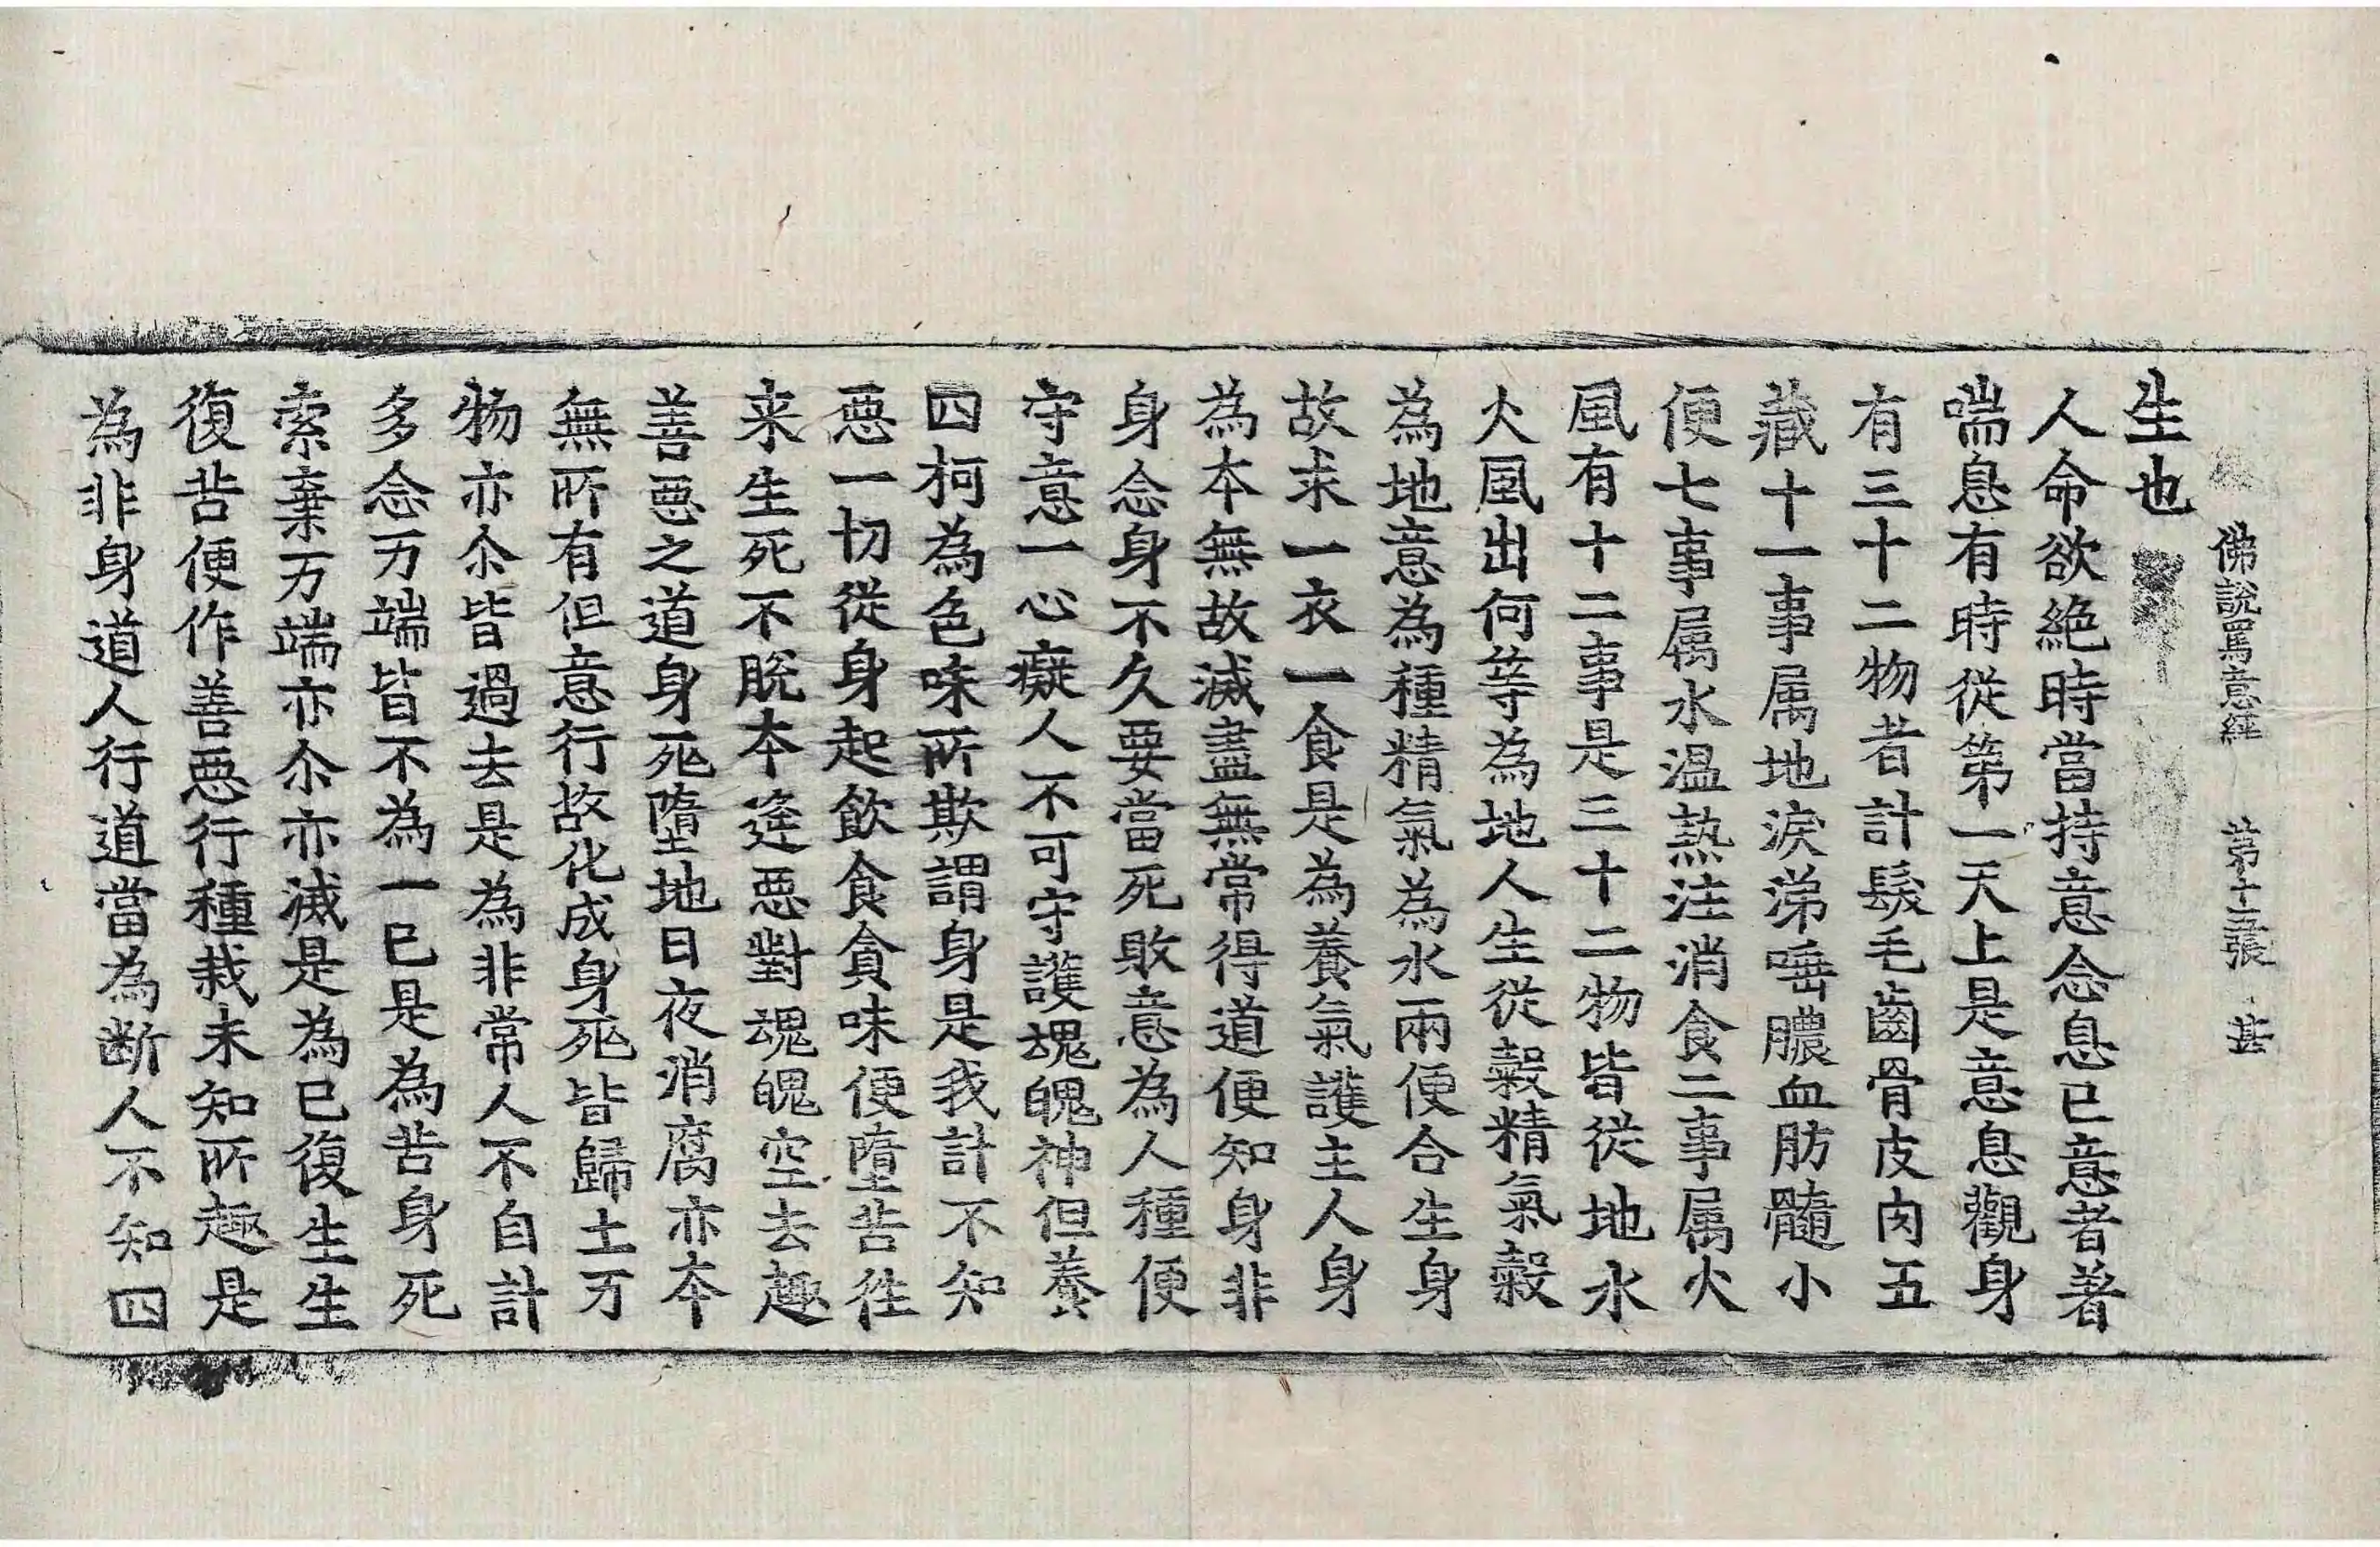 佛說罵意經 第十五張 甚
生也
人命欲絶時當持意念息已意者著
喘息有時從第一天上是意息觀身
有三十二物者計髮毛齒骨皮肉五
藏十一事属地淚涕唾膿血肪髓小
便七事属水温熱注消食二事属火
風有十二事是三十二物皆從地水
火風出何等為地人生從糓精氣糓
為地意為種精氣為水兩便合生身
故求一衣一食是為養氣護主人身
為本無故滅盡無常得道便知身非
身念身不久要當死敗意為人種便
守意一心癡人不可守護魂魄神但養
四柯為色味所欺謂身是我計不知
惡一切從身起飲食貪味便墮苦徃
来生死不脫本逄惡對魂魄空去趣
善惡之道身死墮地日夜消腐亦本
無所有但意行故化成身死皆歸土万
物亦尒皆過去是為非常人不自計
多念万端皆不為一已是為苦身死
索棄万端亦尒亦滅是為已復生生
復苦便作善惡行種栽未知所趣是
為非身道人行道當為断人不知四